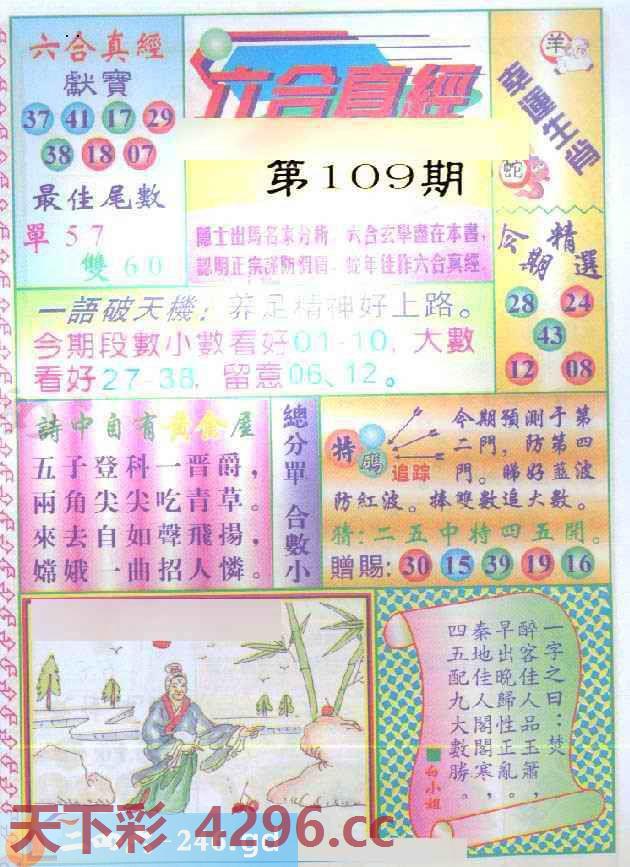 六合真經
獻寶
37 41 17 29
38 18 07
最佳尾數
單 5 7
雙 6 0
六合真經
第109期
隱士出馬名家分析 六合玄學盡在本書,
認明正宗謹防假冒 蛇年佳作六合真經
羊
幸運生肖
蛇
今期精選
28 24
43
12 08
一語破天機:养足精神好上路。
今期段數小數看好01-10,大數
看好27-38,留意06、12。
詩中自有黄金屋
五子登科一晋爵,
兩角尖尖吃青草。
來去自如聲飛揚,
嫦娥一曲招人憐。
總分單 合數小
特碼
追踪
今期預測于第
二門,防第四
門。睇好藍波
防紅波。捧雙數追大數。
猜:二五中特四五開。
贈賜:30 15 39 19 16
一字之曰:焚
醉客佳人品玉簫,
早出晚歸性正亂,
秦地佳人閣閣寒。
四五配九大數勝。
白小姐
天下彩 4296.cc
246.gd